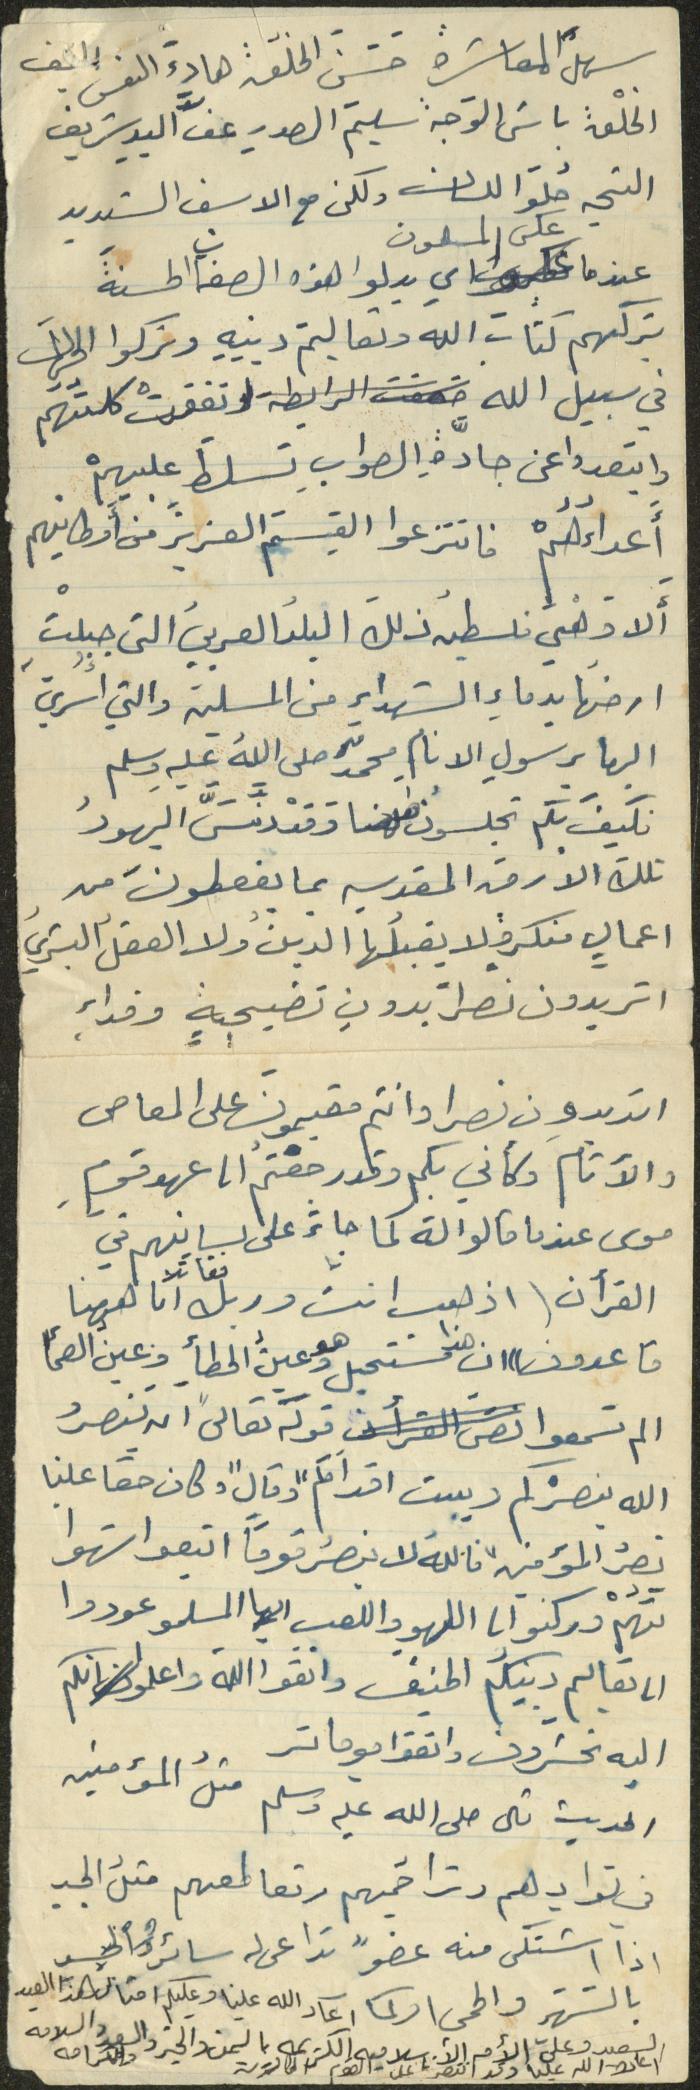 سهلَ المعاشرة حَسَنَ الخِلْقةِ هادئَ النفسِ
الخلْقةِ باشَ الوَجهِ سليمَ الصدرِ عفَّ اليدِ شريفَ
حُلوَ اللسان ولكن مع الاسف الشديد
عندما عكس المسلمون بدلوا هذه الصفات الحسنةَ
بتركهم كتابَ اللهَ وتعاليمَ دينِهِ وتركوا الجهادَ
في سبيل الله ضعفت الرابطة وتفرقتْ كلمتُهُم
وابتعدوا عن جادَّةِ الصوابِ تسلطَ عليهِمْ
أَعداءُهُمْ فانتزعوا القِسمَ العزيزَ من أَوطانِهم
ألا وَهْيَ فلسطينُ ذلكَ البلدُ العربيُ التي جبلتْ
ارضَها بدماءِ الشهداءِ من المسلمين والتي أُسْرِيَ
اليها برسولِ الانامِ محمدٍ صلى اللهُ عليهِ وسلم
فكيفَ بكم تجلسونَ هاهنا وَقَدْ دنَّسَ اليهودُ
تلكَ الارضَ المقدسه بما يفعلونَ من
اعمالٍ منكرةٍ لا يقبلُها الدينُ ولا العقلُ البشريُ
اتريدون نصراً بدونِ تضيحيةٍ وفداءٍ
اتريدون نصرا وانتم مقيمونَ على المعاصي
والآثام وكأني بكم وقدْ رجعْتُم الى عهد قومِ
موسى عندما قالوا له كما جاءَ على لسانِهم في
القرأن (اذهب انت وربك فقاتلا انا ههنا
قاعدون) ان هذا مستحيل هو وعينُ الخطأِ وعينُ
الم تسمعوا نصَ القرأن قولَه تعالى "ان تنصروا
الله ينصرْكم ويثبت اقدامَكم" وقال "وكان حقا علينا
نصرُ المؤمنين" فاللهُ لا ينصرُ قوماً اتبعوا شهوا
تَهُمْ وركنوا الى اللهو واللعب ايها المسلمو عودوا
الى تعاليم دينِكُم الحنيفِ واتقوا اللهَ واعلموا انكم
اليه تحشرون واتقوا يوما تر
الحديث قال صلى الله عليه وسلم مثلُ المؤمنين
في توادِهم وتراحُمِهم وتعاطفهم مثلُ الجسد
اذا اشتكى منه عضوٌ تداعى له سائرُ الجسد
بالسَّهَرِ والحمى او كما اعاد الله علينا وعليكم امثال هذا العيد
السعيد وعلى الأمم الإسلاميه الكريمه باليمن والخير والسعد والسلامه
اعاده الله علينا وقد انتصرنا على القوم والكرامه